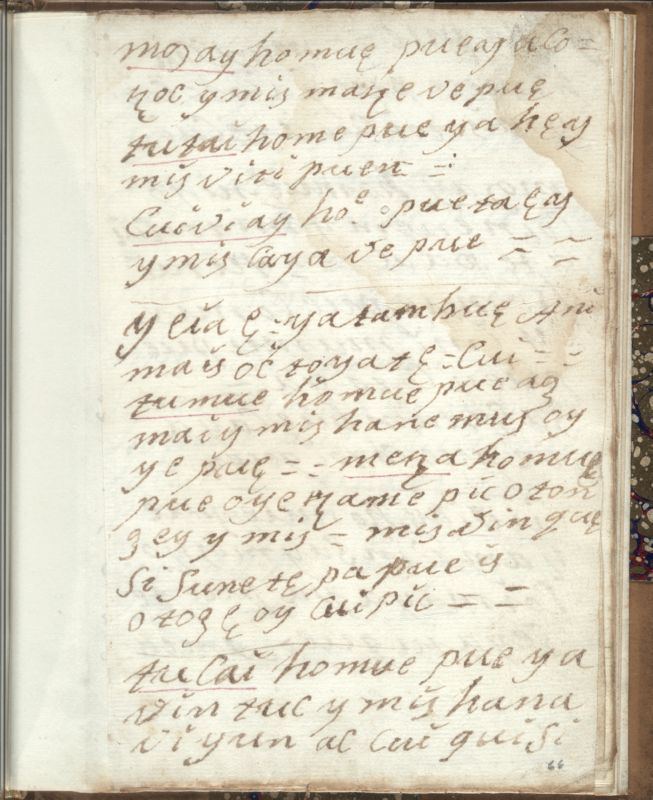 moɔay homuę pueay a Co=
ȵoc y miş maȵe ve puę
tutai home pue ya hęy
miş viti puen =
Cuiviay hoᵉ. puetaęy
y miş Caya ve pue = =
y eia ę = yatamhuę Ani
maiş oc toyatę = Cui = =
tumue homue pue ag
mai y miş hane muş oy
ye puę = = meȵa homuę
pue oye ȵame pic oton
gey y miş = miş vin quę
si sunetę pa pue iş
otogę oy Cui pic = =
tuCai homue pue ya
vin tuc y miş hana
vi yun ac Cui quisi
66